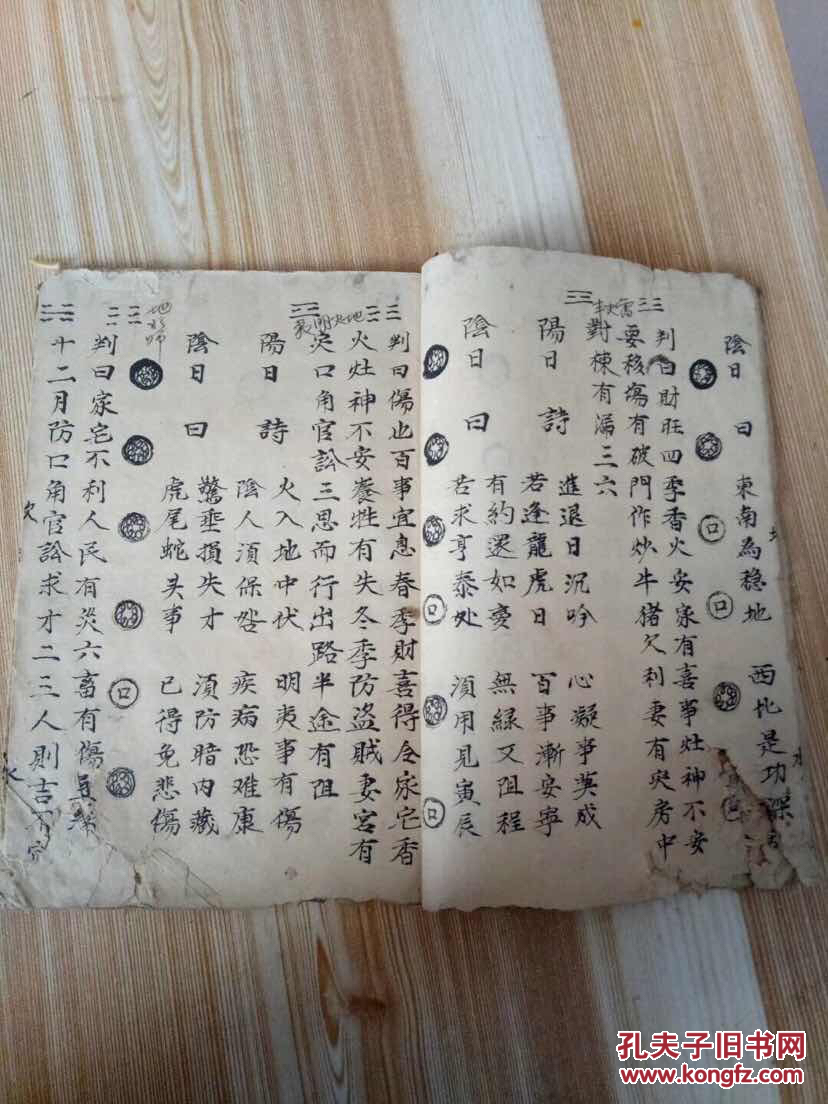 陰日 曰 東南為穩地 西北是功深
判曰財旺四季香火安家有喜事灶神不安
要移瘍有破門作炒牛猪欠利妻有灾房中
對棟有漏三六
陽日 詩 進退日沉吟 心凝事莫成
若逢龍虎日 百事漸安寧
陰日 曰 有約還如憂 無緑又阻程
苦求亨泰处 須用見寅辰
判曰傷也百事宜息春季財喜得令家宅香
火灶神不安養牲有失冬季防盗賊妻宮有
灾口角官訟三思而行出路半途有阻
陽日 詩 火入地中伏 明夷事有傷
陰人須保咎 疾病恐难康
陰日 曰 驚垂損失才 須防暗内藏
虎尾蛇头事 已得免悲傷
地 师
判曰家宅不利人民有災六畜有傷
十二月防口角官訟求才二三人則吉不宜
孔夫子旧书网
www.kongfz.com